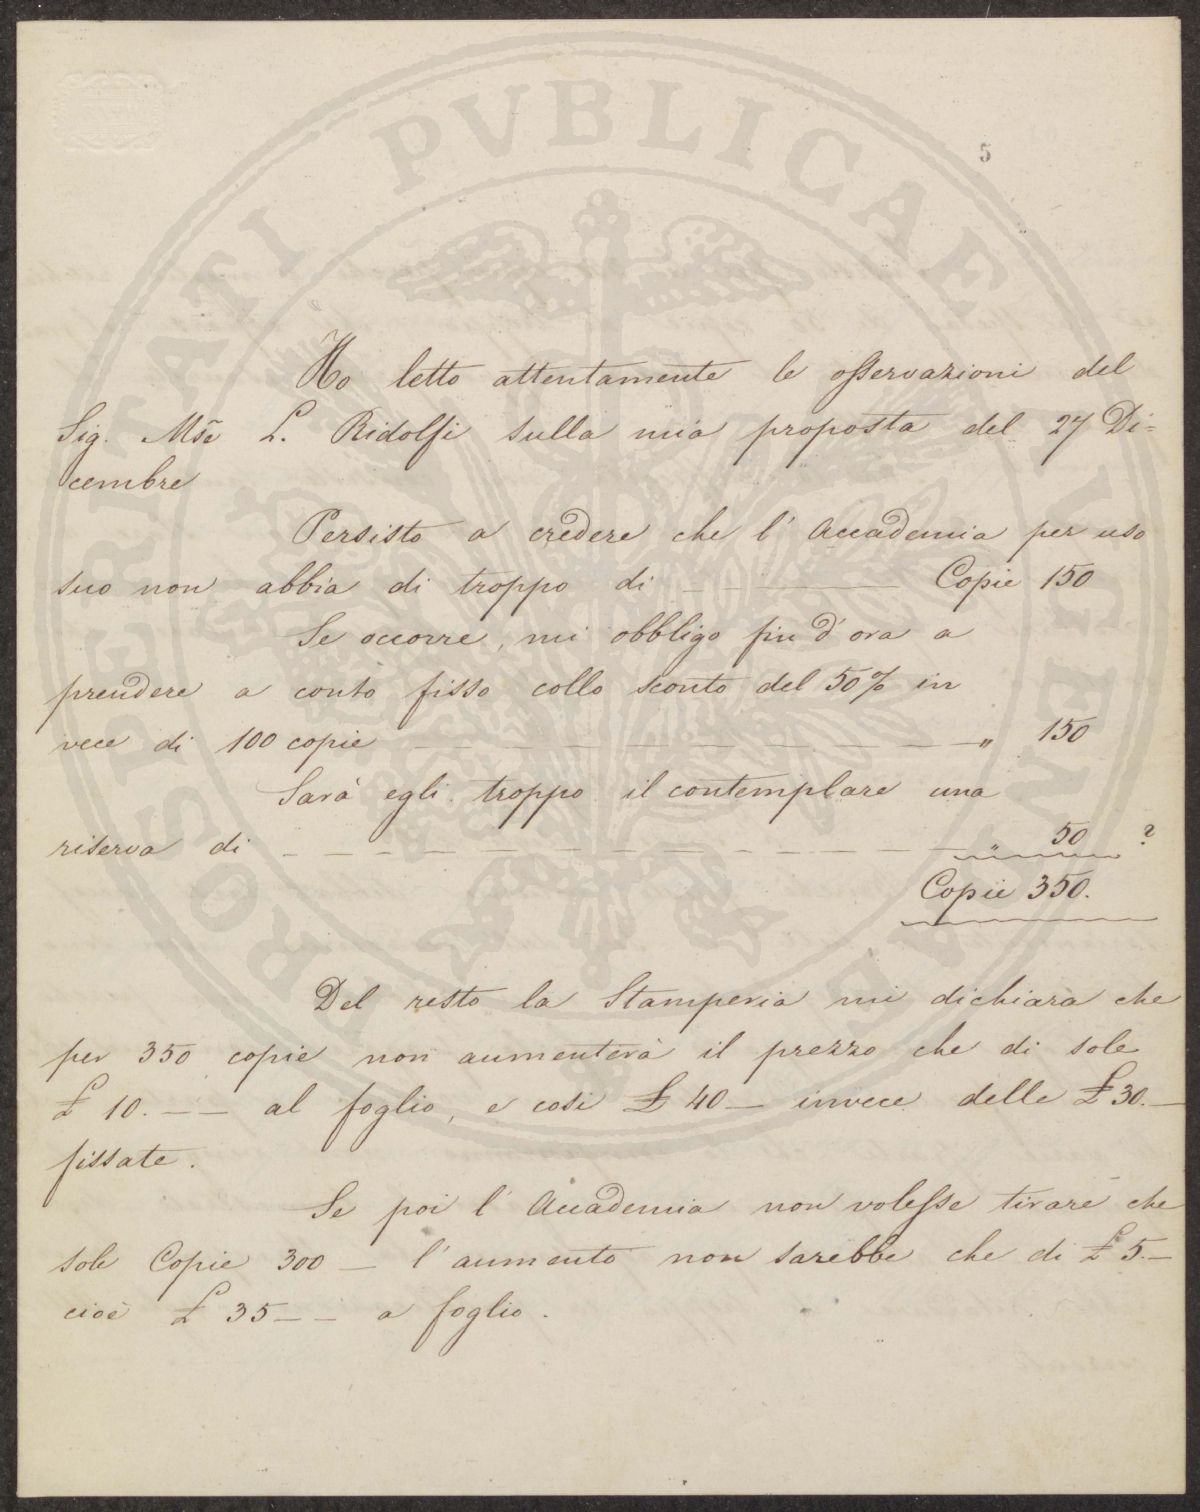 PROSPERITATI PVBLICAE AVGENDAE
5
Ho letto attentamente le osservazioni del
Sig. Mse L. Ridolfi sulla mia proposta del 27 Di=
cembre
Persisto a credere che l' Accademia per uso
suo non abbia di troppo di — — — Copie 150
Se occorre, mi obbligo fin d' ora a
prendere a conto fisso collo sconto del 50% in
vece di 100 copie — — — — — — — — „ 150
Sarà egli troppo il contemplare una
riserva di — — — — — — — — — — — — „ 50 ?
Copie 350.
Del resto la Stamperia mi dichiara che
per 350 copie non aumenterà il prezzo che di sole
£ 10. — — al foglio, e così £ 40 — invece delle £ 30. —
fissate.
Se poi l' Accademia non volesse tirare che
sole Copie 300 — l' aumento non sarebbe che di £ 5. —
cioè £ 35 — — a foglio.